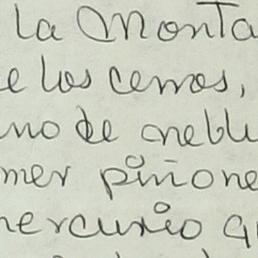 la Monta
e los cerros,
no de neblu
mer piñone
mercurio qu